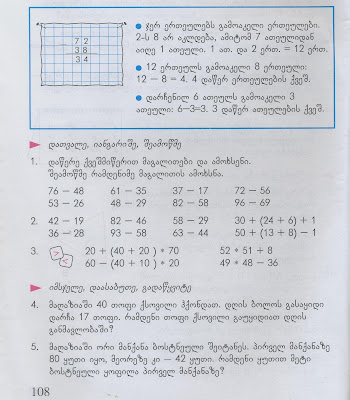 7 2
3 8
3 4
• ჯერ ერთეულებს გამოაკელი ერთეულები.
2-ს 8 არ აკლდება, ამიტომ 7 ათეულიდან
აიღე 1 ათეული. 1 ათ. და 2 ერთ. = 12 ერთ.
• 12 ერთეულს გამოაკელი 8 ერთეული:
12 – 8 = 4. 4 დაწერ ერთეულების ქვეშ.
• დარჩენილ 6 ათეულს გამოაკელი 3
ათეული: 6–3=3. 3 დაწერ ათეულების ქვეშ.
დათვალე, იანგარიშე, შეამოწმე
1. დაწერე ქვეშმიწერით მაგალითები და ამოხსენი.
შეამოწმე რამდენიმე მაგალითის ამოხსნა.
76 – 48 61 – 35 37 – 17 72 – 56
53 – 26 48 – 29 82 – 58 96 – 69
2. 42 – 19 82 – 46 58 – 29 30 + (24 + 6) + 1
36 – 28 93 – 58 63 – 44 50 + (13 + 8) – 1
3. > < 20 + (40 + 20 ) * 70 52 * 51 + 8
60 – (40 + 10 ) * 20 49 * 48 – 36
იმსჯელე, დაასაბუთე, გადაწყვიტე
4. მაღაზიაში 40 თოფი ქსოვილი ჰქონდათ. დღის ბოლოს გასაყიდი
დარჩა 17 თოფი. რამდენი თოფი ქსოვილი გაუყიდიათ დღის
განმავლობაში?
5. მაღაზიაში ორი მანქანა ბოსტნეული შეიტანეს. პირველ მანქანაზე
80 ყუთი იყო, მეორეზე კი – 42 ყუთი. რამდენი ყუთით მეტი
ბოსტნეული ყოფილა პირველ მანქანაზე?
108